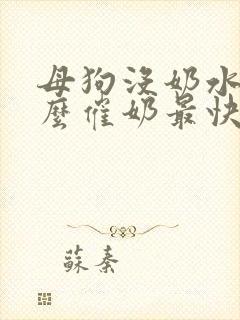 母狗没奶水
麽催奶最快
蘇秦